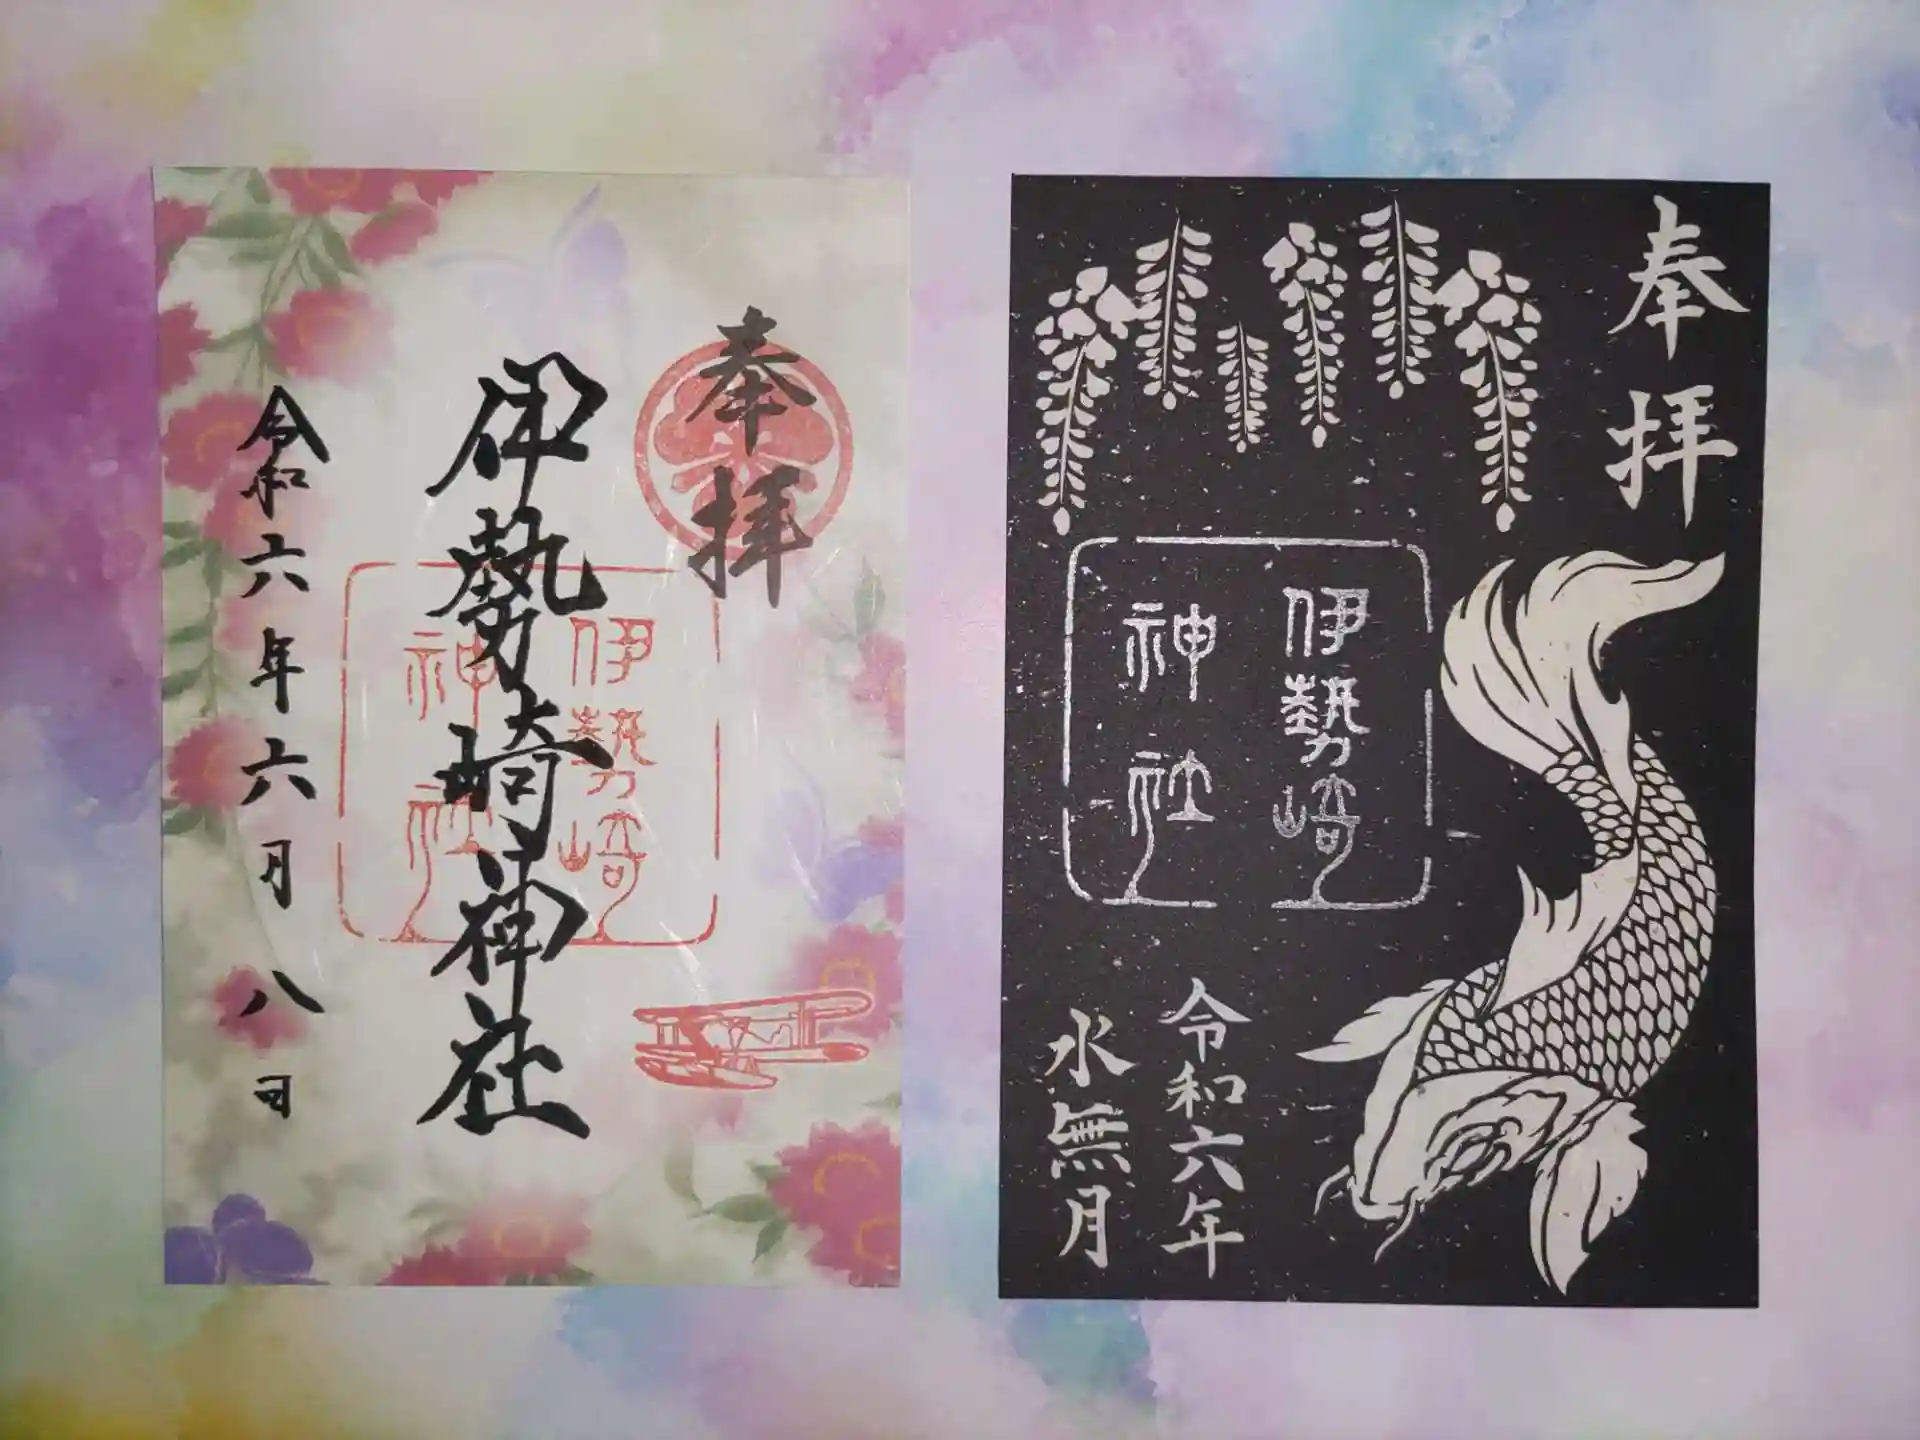 奉拝
伊勢崎神社
伊勢崎
神社
令和六年六月八日
奉拝
伊勢崎
神社
令和六年
水無月